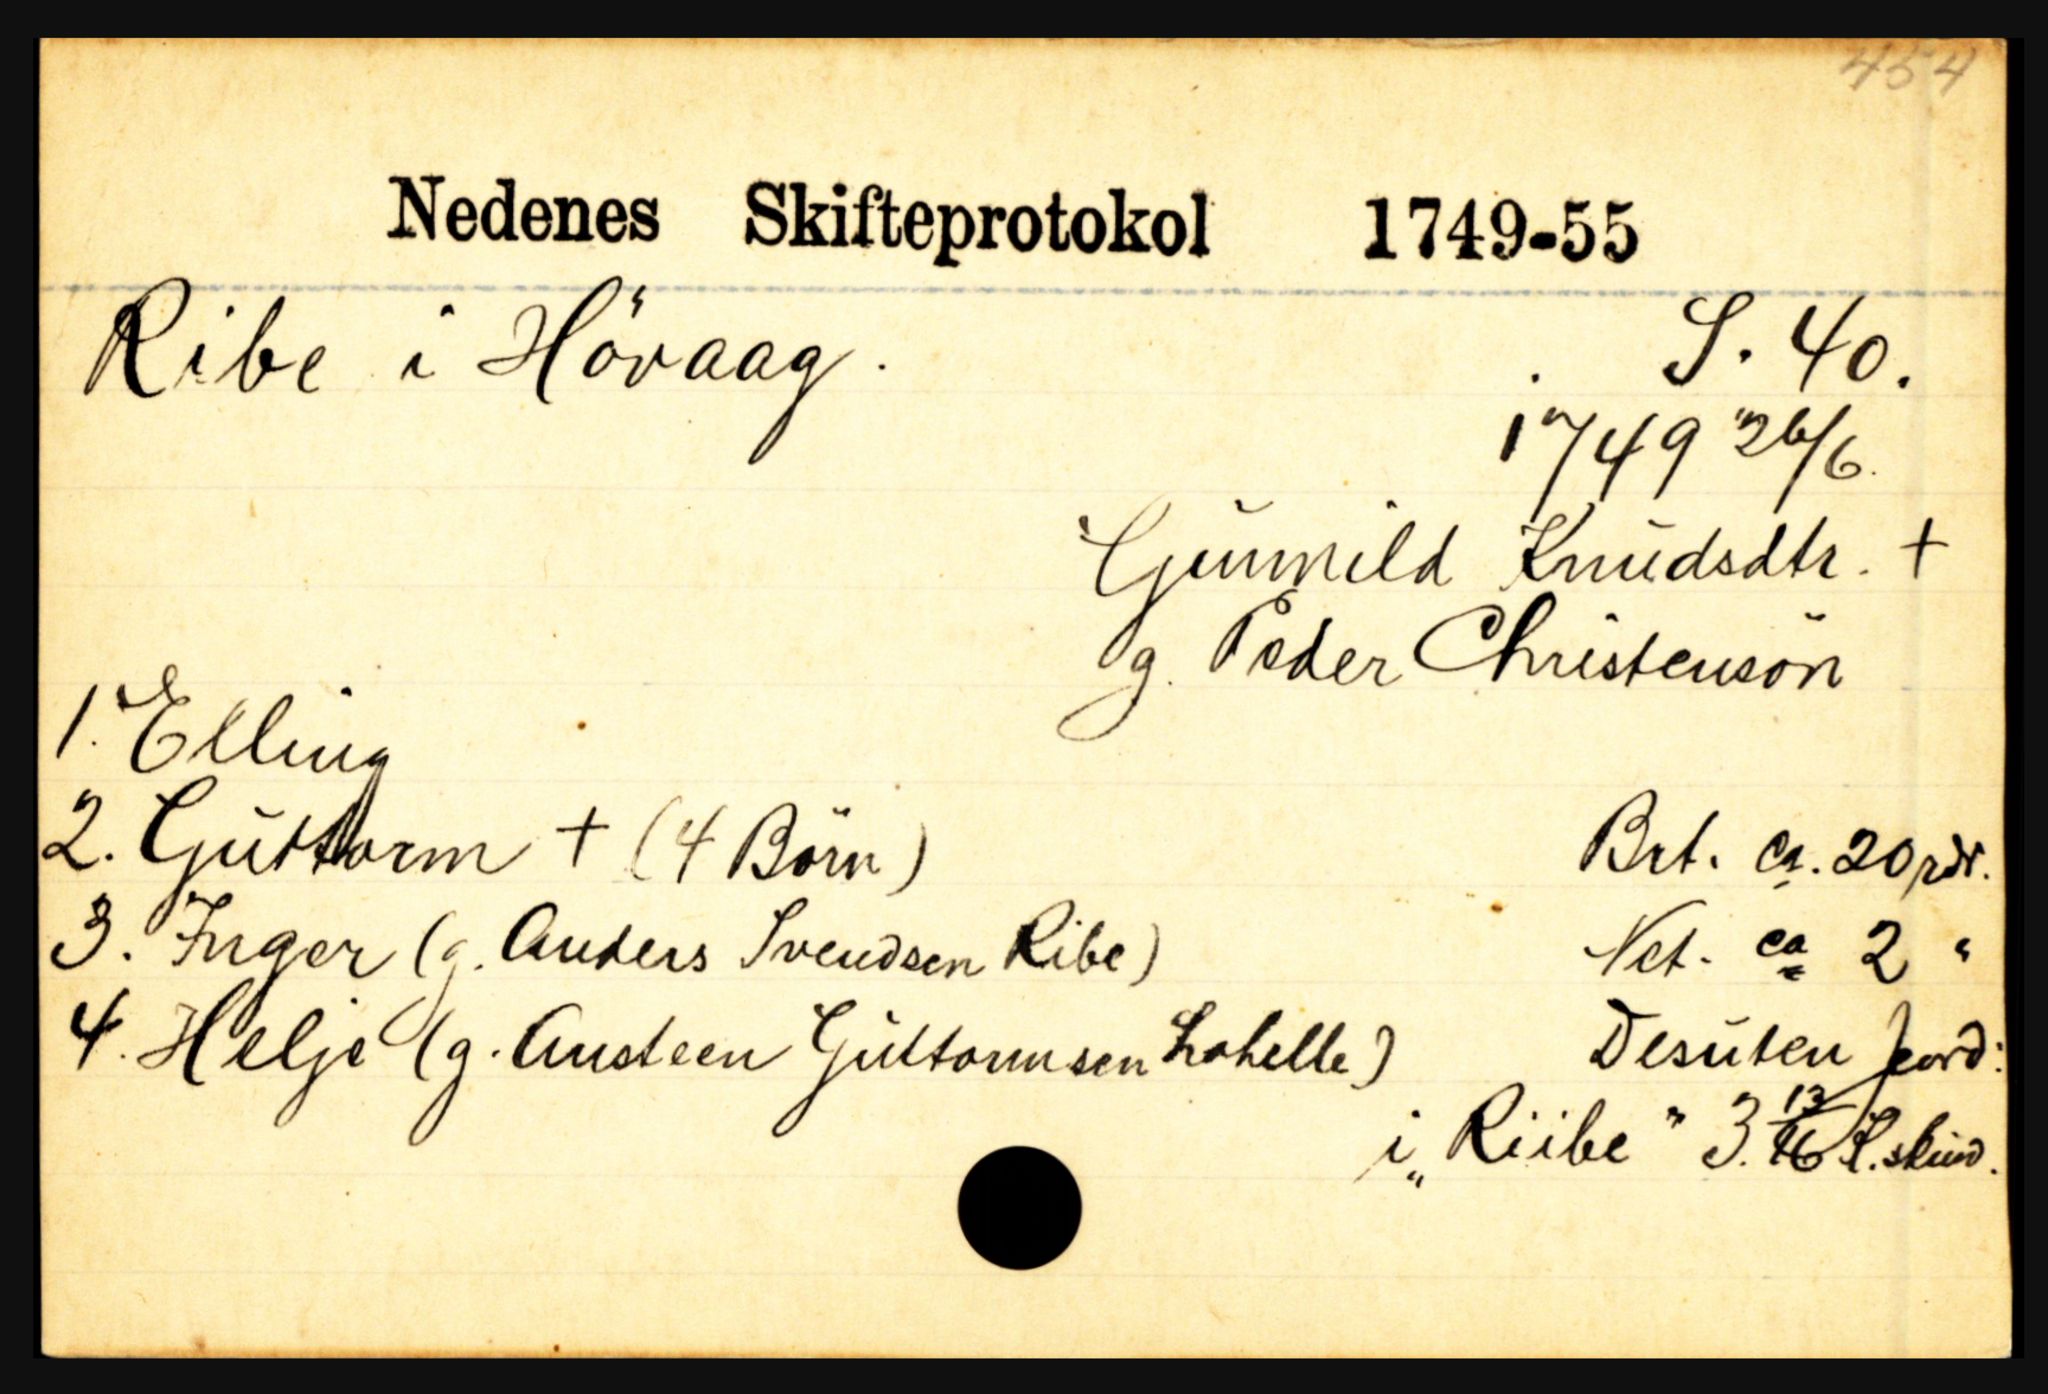 454
Nedenes Skifteprotokol 1749-55
Ribe i Hövaag. S. 40.
1749 26/6.
Gunnild Knudsdtr. +
g. Peder Christensön
1. Elling
2. Guttorm + (4 Börn) Brt. ca. 20 rdr.
3. Inger (g. Anders Svendsen Ribe) Net. ca 2 "
4. Helje (g. Austeen Guttormsen Lohelle) Desuten Jord:
i „Riibe" 3 13/16 K. skind.